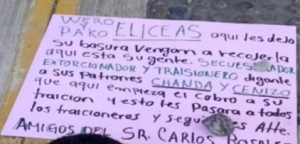 WERO
PAKO ELICEAS aqui les dejo
su basura Vengan a recojerla
aqui esta su gente. SECUESTRADOR
EXTORCIONADOR Y TRAISIONERO diganle
a sus PATRONES CHANDA Y CENIZO
que aqui empieza el Cobro a su
traicion y esto les Pasara a todos
los traicioneros y segui Atte.
AMIGOS DEL SR. CARLOS ROSALES